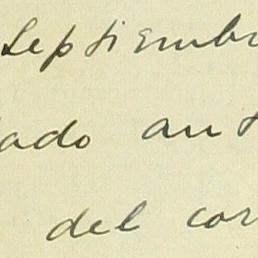 Septiembr
ado ant
del cor